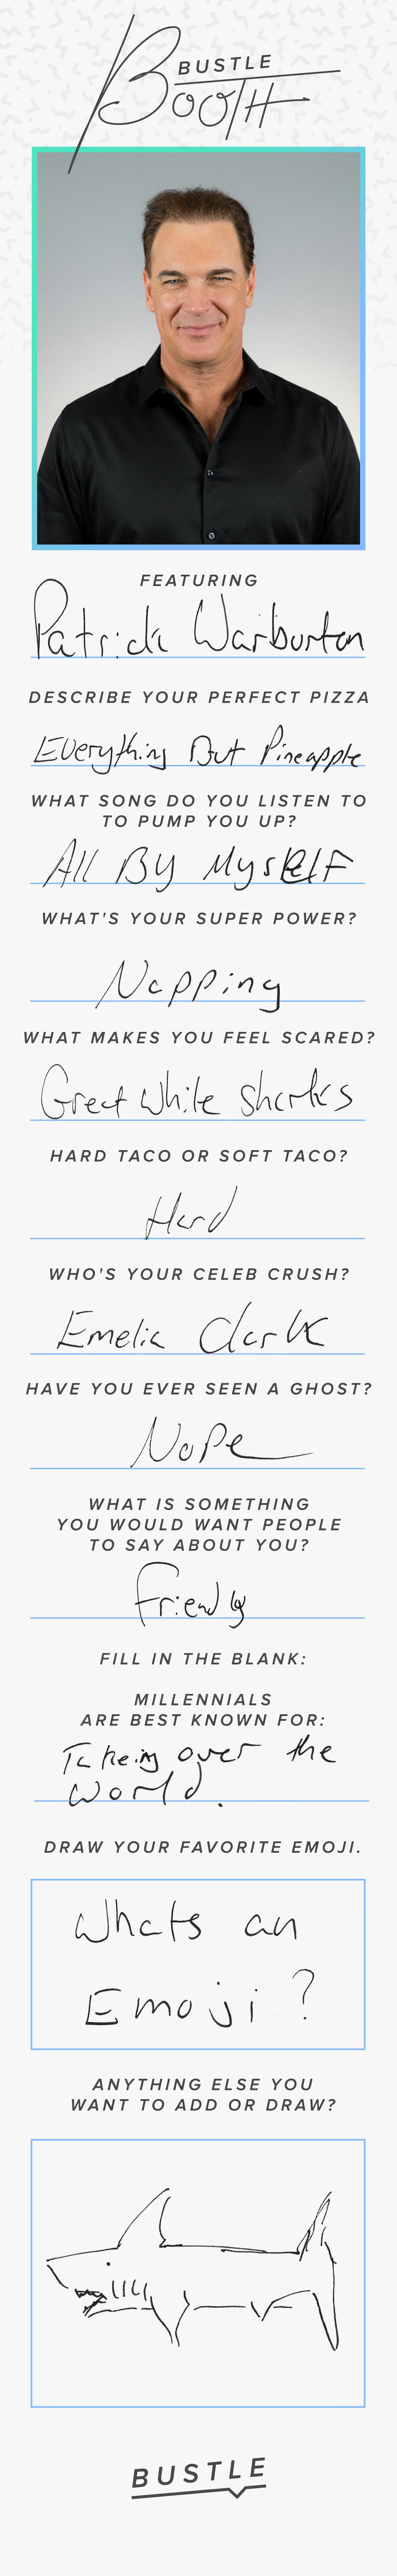 BUSTLE
BOOTH
FEATURING
Patrick Warburton
DESCRIBE YOUR PERFECT PIZZA
Everything But Pineapple
WHAT SONG DO YOU LISTEN TO
TO PUMP YOU UP?
All By Myself
WHAT'S YOUR SUPER POWER?
Napping
WHAT MAKES YOU FEEL SCARED?
Great White Sharks
HARD TACO OR SOFT TACO?
Hard
WHO'S YOUR CELEB CRUSH?
Emelia Clark
HAVE YOU EVER SEEN A GHOST?
Nope
WHAT IS SOMETHING
YOU WOULD WANT PEOPLE
TO SAY ABOUT YOU?
Friendly
FILL IN THE BLANK:
MILLENNIALS
ARE BEST KNOWN FOR:
Takeing over the
World.
DRAW YOUR FAVORITE EMOJI.
Whats an
Emoji?
ANYTHING ELSE YOU
WANT TO ADD OR DRAW?
BUSTLE